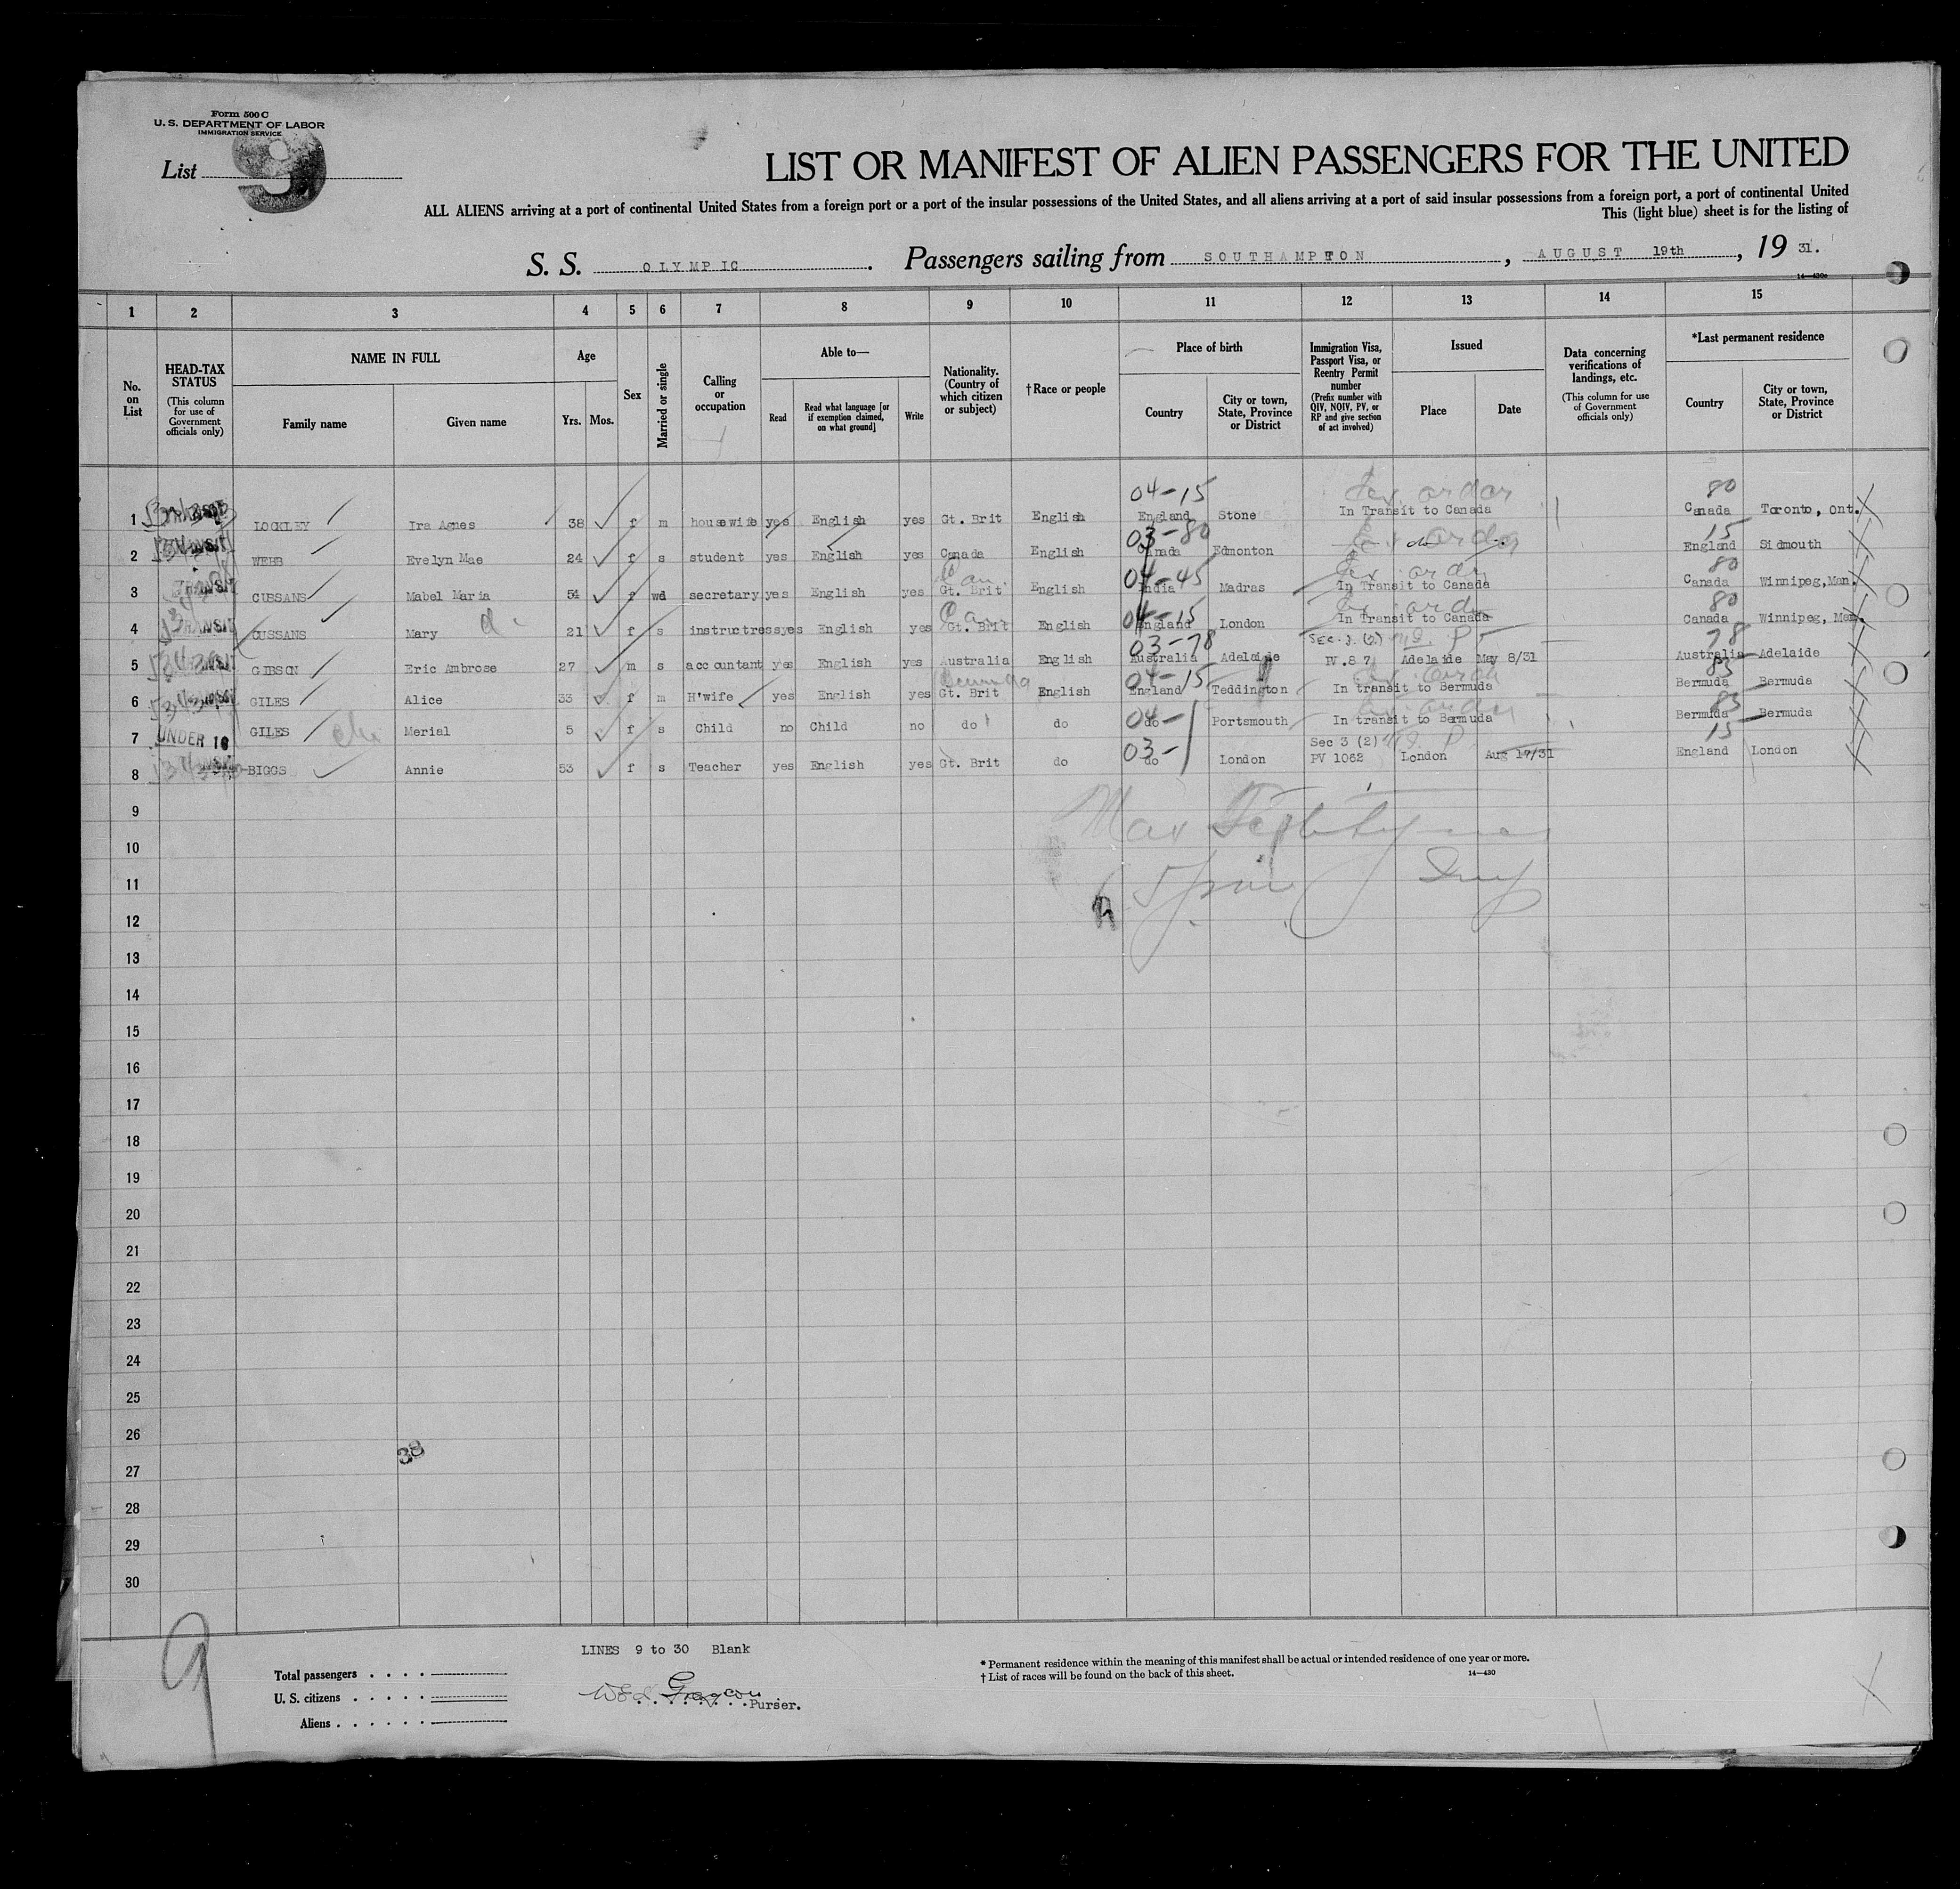 Form 500 C
U. S. DEPARTMENT OF LABOR
IMMIGRATION SERVICE
List 9
LIST OR MANIFEST OF ALIEN PASSENGERS FOR THE UNITED
ALL ALIENS arriving at a port of continental United States from a foreign port or a port of the insular possessions of the United States, and all aliens arriving at a port of said insular possessions from a foreign port, a port of continental United
This (light blue) sheet is for the listing of
S. S. OLYMPIC. Passengers sailing from SOUTHAMPTON, AUGUST 19th, 1931.
14—430c
1 2 3 4 5 6 7 8 9 10 11 12 13 14 15
No. on List
HEAD-TAX STATUS (This column for use of Government officials only)
NAME IN FULL Family name Given name
Age Yrs. Mos.
Sex
Married or single
Calling or occupation
Able to— Read Read what language [or if exemption claimed, on what ground] Write
Nationality. (Country of which citizen or subject)
†Race or people
Place of birth Country City or town, State, Province or District
Immigration Visa, Passport Visa, or Reentry Permit number (Prefix number with QIV, NQIV, PV, or RP and give section of act involved)
Issued Place Date
Data concerning verifications of landings, etc. (This column for use of Government officials only)
*Last permanent residence Country City or town, State, Province or District
04-15 80
1 LOCKLEY Ira Agnes 38 f m housewife yes English yes Gt. Brit English England Stone In Transit to Canada Canada Toronto, Ont.
03-80 15
2 TRANSIT WEBB Evelyn Mae 24 f s student yes English yes Canada English Canada Edmonton do England Sidmouth
Can. 04-45 80
3 TRANSIT CUSSANS Mabel Maria 54 f wd secretary yes English yes Gt. Brit English India Madras In Transit to Canada Canada Winnipeg, Man.
Can. 04-15 80
4 TRANSIT CUSSANS Mary 21 f s instructress yes English yes Gt. Brit English England London In Transit to Canada Canada Winnipeg, Man.
03-78 SEC. 3. (2) 78
5 GIBSON Eric Ambrose 27 m s accountant yes English yes Australia English Australia Adelaide PV.87 Adelaide May 8/31 Australia Adelaide
Bermuda 04-15 83
6 GILES Alice 33 f m H'wife yes English yes Gt. Brit English England Teddington In transit to Bermuda Bermuda Bermuda
04- 83
7 UNDER 16 GILES Merial 5 f s Child no Child no do do do Portsmouth In transit to Bermuda Bermuda Bermuda
03- Sec 3 (2) 15
8 BIGGS Annie 53 f s Teacher yes English yes Gt. Brit do do London PV 1062 London Aug 17/31 England London
9
10
11
12
13
14
15
16
17
18
19
20
21
22
23
24
25
26
38
27
28
29
30
9
LINES 9 to 30 Blank
Total passengers
U. S. citizens
Aliens
Purser.
* Permanent residence within the meaning of this manifest shall be actual or intended residence of one year or more.
† List of races will be found on the back of this sheet.
14—430